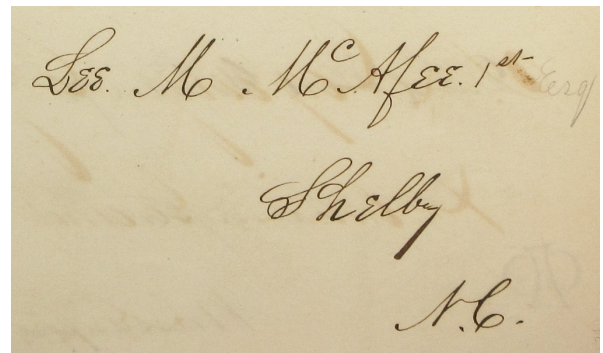 Lee. M. McAfee. 1st Esq
Shelby
N.C.